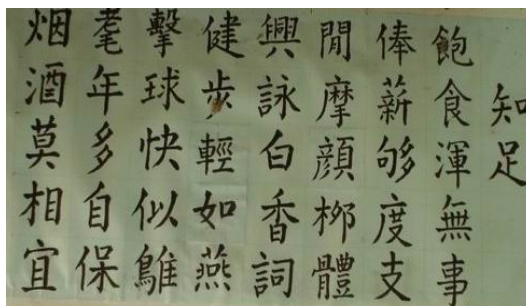 知足
飽食渾無事
俸薪够度支
閒摩顔柳體
興詠白香詞
健步輕如燕
擊球快似鵻
耄年多自保
烟酒莫相宜